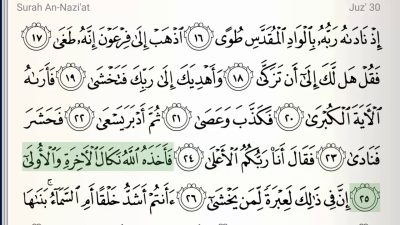 Surah An-Nazi'at Juz' 30
إِذْ نَادَىٰهُ رَبُّهُۥ بِٱلْوَادِ ٱلْمُقَدَّسِ طُوًى ١٦ ٱذْهَبْ إِلَىٰ فِرْعَوْنَ إِنَّهُۥ طَغَىٰ ١٧
فَقُلْ هَل لَّكَ إِلَىٰٓ أَن تَزَكَّىٰ ١٨ وَأَهْدِيَكَ إِلَىٰ رَبِّكَ فَتَخْشَىٰ ١٩ فَأَرَىٰهُ
ٱلْـَٔايَةَ ٱلْكُبْرَىٰ ٢٠ فَكَذَّبَ وَعَصَىٰ ٢١ ثُمَّ أَدْبَرَ يَسْعَىٰ ٢٢ فَحَشَرَ
فَنَادَىٰ ٢٣ فَقَالَ أَنَا۠ رَبُّكُمُ ٱلْأَعْلَىٰ ٢٤ فَأَخَذَهُ ٱللَّهُ نَكَالَ ٱلْـَٔاخِرَةِ وَٱلْأُولَىٰٓ
٢٥ إِنَّ فِى ذَٰلِكَ لَعِبْرَةً لِّمَن يَخْشَىٰٓ ٢٦ ءَأَنتُمْ أَشَدُّ خَلْقًا أَمِ ٱلسَّمَآءُ ۚ بَنَىٰهَا